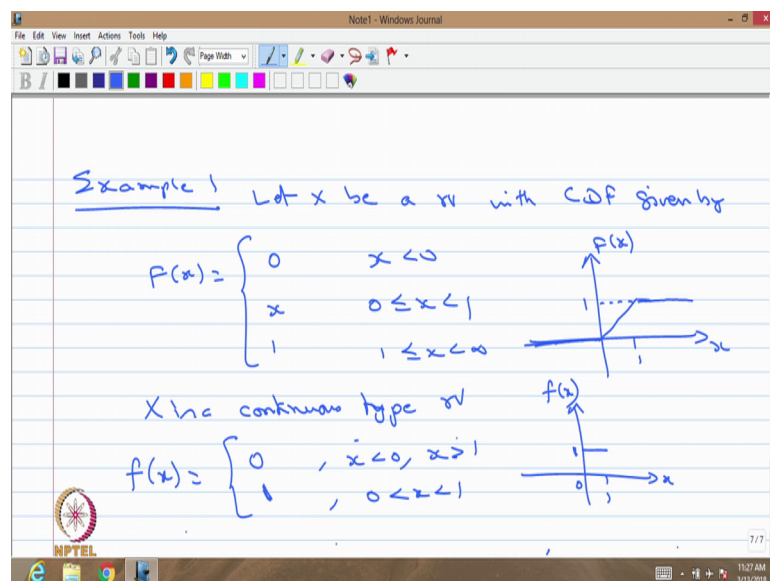 Note1 - Windows Journal
File Edit View Insert Actions Tools Help
Page Width
B I
Example 1 Let X be a rv with CDF given by
F(x) = { 0 x < 0
x 0 ≤ x < 1
1 1 ≤ x < ∞
F(x)
1
1
x
X is a continuous type rv
f(x) = { 0 , x < 0, x > 1
1 , 0 < x < 1
f(x)
1
0
1
x
NPTEL
7/7
11:27 AM